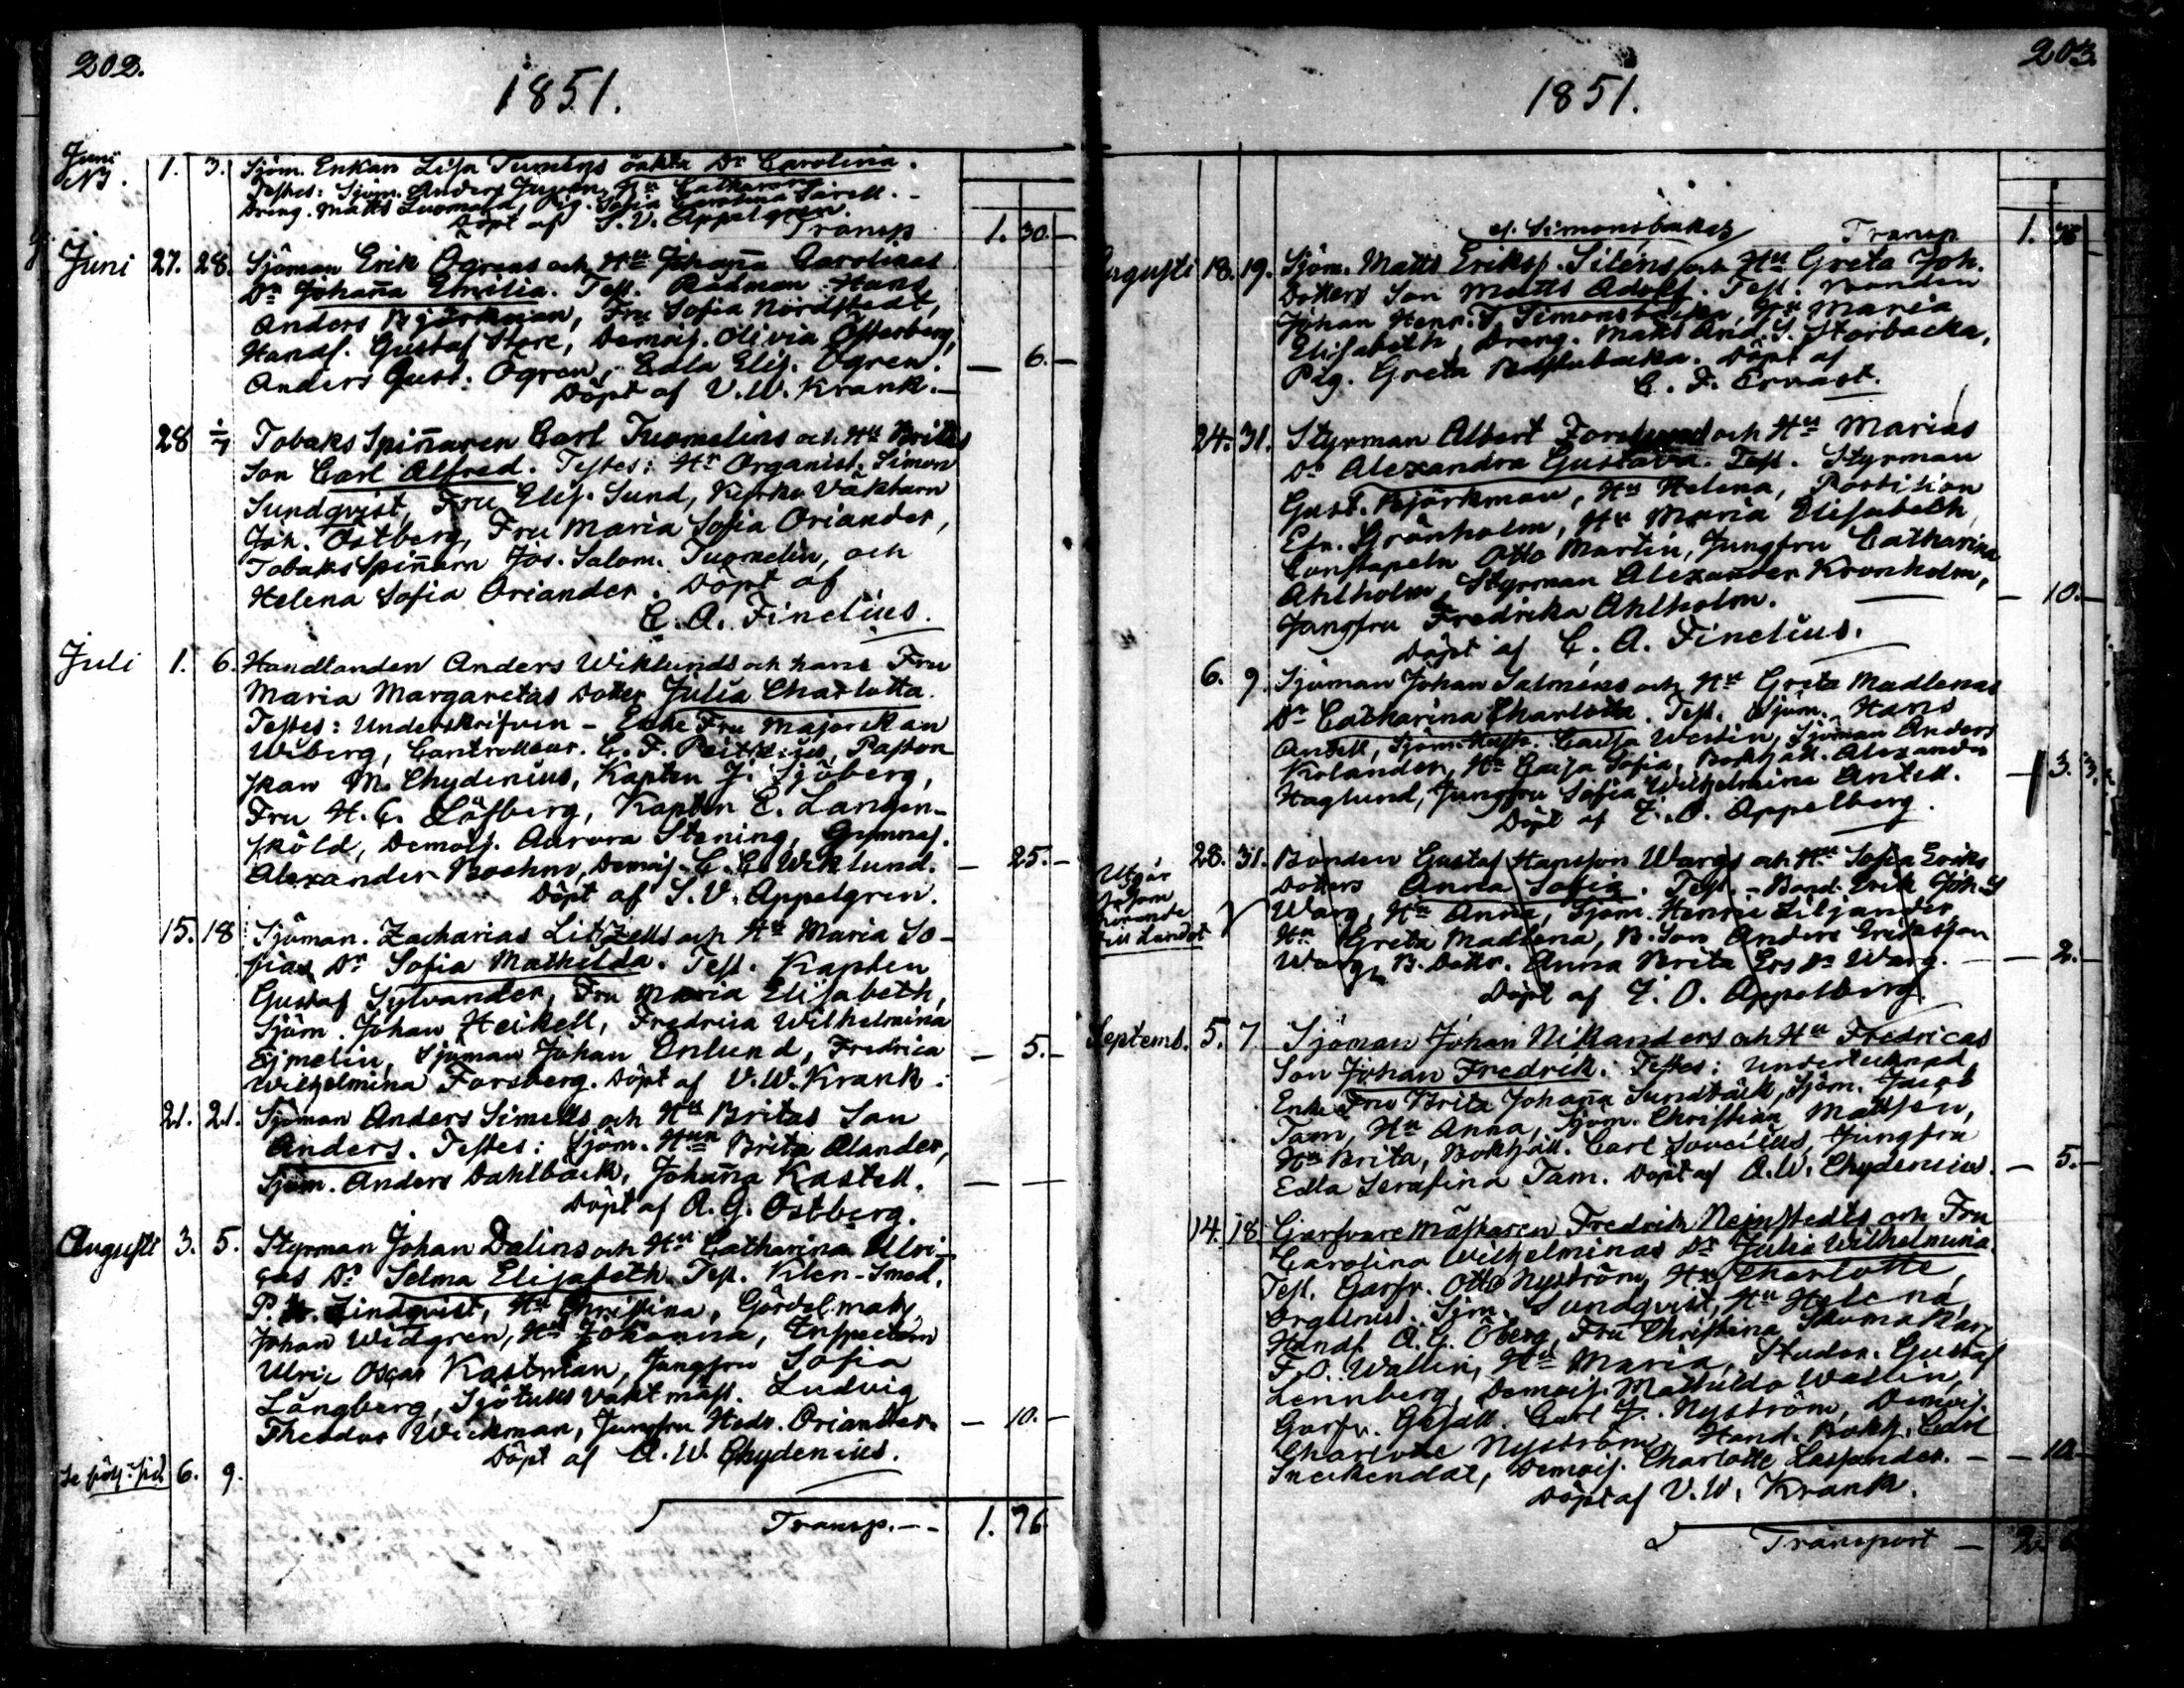 202.
1851.
Juni
N3. 1. 3. Sjöm. Enkan Lisa Tumēns oäkta Dr Carolina.
Testes: Sjöm. Anders Hu
Dreng. Matts Luomala, Pig. Sofia Carolina Sarell.
Döpt af S. V. Appelgren.
Transp 1. 30.
Juni 27. 28. Sjöman Erik Ögrens och Hu Johana Carolinas
Dr Johana Emelia. Test. Rådman Hans
Anders Björkman, Fru Sofia Nordstedt,
Handl. Gustaf Store, Demois. Olivia Österberg,
Anders Gust: Ögren, Edla Elis. Ögren. — 6. —
Döpt af V. W. Krank. —
28 1/7 Tobaks Spinaren Carl Tuomelins och Hu Britas
Son Carl Alfred. Testes: Hr Organist. Simon
Sundqvist, Fru Elis. Sund, Kyrko Väktarn
Joh. Östberg, Fru Maria Sofia Oriander,
Tobaks Spinarn Jos. Salom. Tuomelin, och
Helena Sofia Oriander. Döpt af
C. A. Finelius.
Juli 1. 6. Handlanden Anders Wiklunds och hans Fru
Maria Margaretas Dotter Julia Charlotta.
Testes: Underskrifven – Enke Fru Majorskan
Wiberg, Controlleur. C. F. Pastor
skan M. Chydenius, Kapten J. Sjöberg,
Fru H. C. Löfberg, Kapten E. Langen-
sköld, Demois. Aurora Stening, Gymnas.
Alexander Boehm, Demois. C. C. Wiklund. — 25. —
Döpt af S. V. Appelgren.
15. 18 Sjöman. Zacharias Litzells och Hu Maria So-
fias Dr Sofia Mathelda. Test. Kapten
Gustaf Sylvander, Fru Maria Elisabeth,
Sjöm. Johan Heikell, Fredrica Wilhelmina
Ejmelin, Sjöman Johan Enlund, Fredrica — 5. —
Wilhelmina Forsberg. Döpt af V. W. Krank.
21. 21. Sjöman Anders Simells och Hu Britas Son
Anders. Testes: Sjöm. Hun Brita Alander,
Sjöm. Anders Dahlbäck, Johana Kastell. — —
Döpt af A. G. Östberg.
Augusti 3. 5. Styrman Johan Dalins och Hu Catharina Ulri-
cas Dr Selma Elisabeth. Test. Klen-Smed.
P. Lindqvist, Hu Christina, Gördelmak.
Johan Widgren, Hu Johanna, Inspectorn
Ulric Oscar Kastman, Jungfru Sofia
Långberg, Sjötulls vaktmäst. Ludvig
Theodor Wickman, Jungfru Hedv. Oriander. — 10. —
Döpt af A. W. Chydenius.
Se följ. sid. 6. 9.
Transp. — 1. 76
203.
1851.
el. Simonsbacka Transp 1. 76
Augusti 18. 19. Sjöm. Matts Eriks. Siléns och Hu Greta Joh.
Dotters Son Matts Adolf. Test. Bonden
Johan Henr. S Simonsbacka, Hu Maria
Elisabeth, Dreng. Matts And. S. Storbacka,
Pig. Greta Döpt af
C. F. Ervast.
24. 31. Styrman Albert och Hu Marias
Dr Alexandra Gustava. Test. Styrman
Gust. Björkman, Hu Helena, Postilion
Efr. Grönholm, Hu Maria Elisabeth,
Constapeln Otto Martin, Jungfru Catharina
Ahlholm, Styrman Alexander Kronholm,
Jungfru Fredrika Ahlholm. — 10. —
Döpt af C. A. Finelius.
6. 9. Sjöman Johan Salméns och Hu Greta Madlenas
Dr Catharina Charlotta. Test. Sjöm. Hans
Antell, Sjöm. Hustr. Caisa Westin, Sjöman Anders
Kolander, Hu Caisa Sofia, Bokhåll. Alexander
Haglund, Jungfru Sofia Wilhelmina Antell. — 3. 3.
Döpt af J. O. Appelberg.
Utgår
såsom
hörande
till landet
28. 31. Bonden Gustaf Hansson Wargs och Hu Sofia Eriks
Dotters Anna Sofia. Test. – Bond. Erik Joh. S
Warg, Hu Anna, Sjöm. Henric Liljander,
Hu Greta Madlena, B. Son Anders Ericksson
Warg, B. Dottr. Anna Brita Ers Dr Warg. — 2. —
Döpt af J. O. Appelberg.
Septemb. 5. 7 Sjöman Johan Nikanders och Hu Fredricas
Son Johan Fredrik. Testes: Undertecknad,
Enke Fru Brita Johana Sundbäck, Sjöm. Jacob
Tam, Hu Anna, Sjöm. Christian Mattsén,
Hu Brita, Bokhåll. Carl Jungfru
Edla Serafina Tam. Döpt af A. W. Chydenius. — 5. —
14. 18 Garfvare Mästaren Fredrik Nejmstedts och Fru
Carolina Wilhelminas Dr Julia Wilhelmina.
Test. Garfv. Otto Nyström, Hu Charlotte,
Organist. Sim. Sundqvist, Hu Helena,
Handl. A. G. Öberg, Fru Christina, Skomakar
F. O. Wallin, Hu Maria, Studer. Gustaf
Lennberg, Demois. Mathilda Wallin,
Garfv. Gesäll. Carl J. Nyström, Demois.
Charlotte Nyström, Hand. Bokh. Carl
Sneckendal, Demois. Charlotte Lassander. — — 10. —
Döpt af V. W. Krank.
Transport — 2.